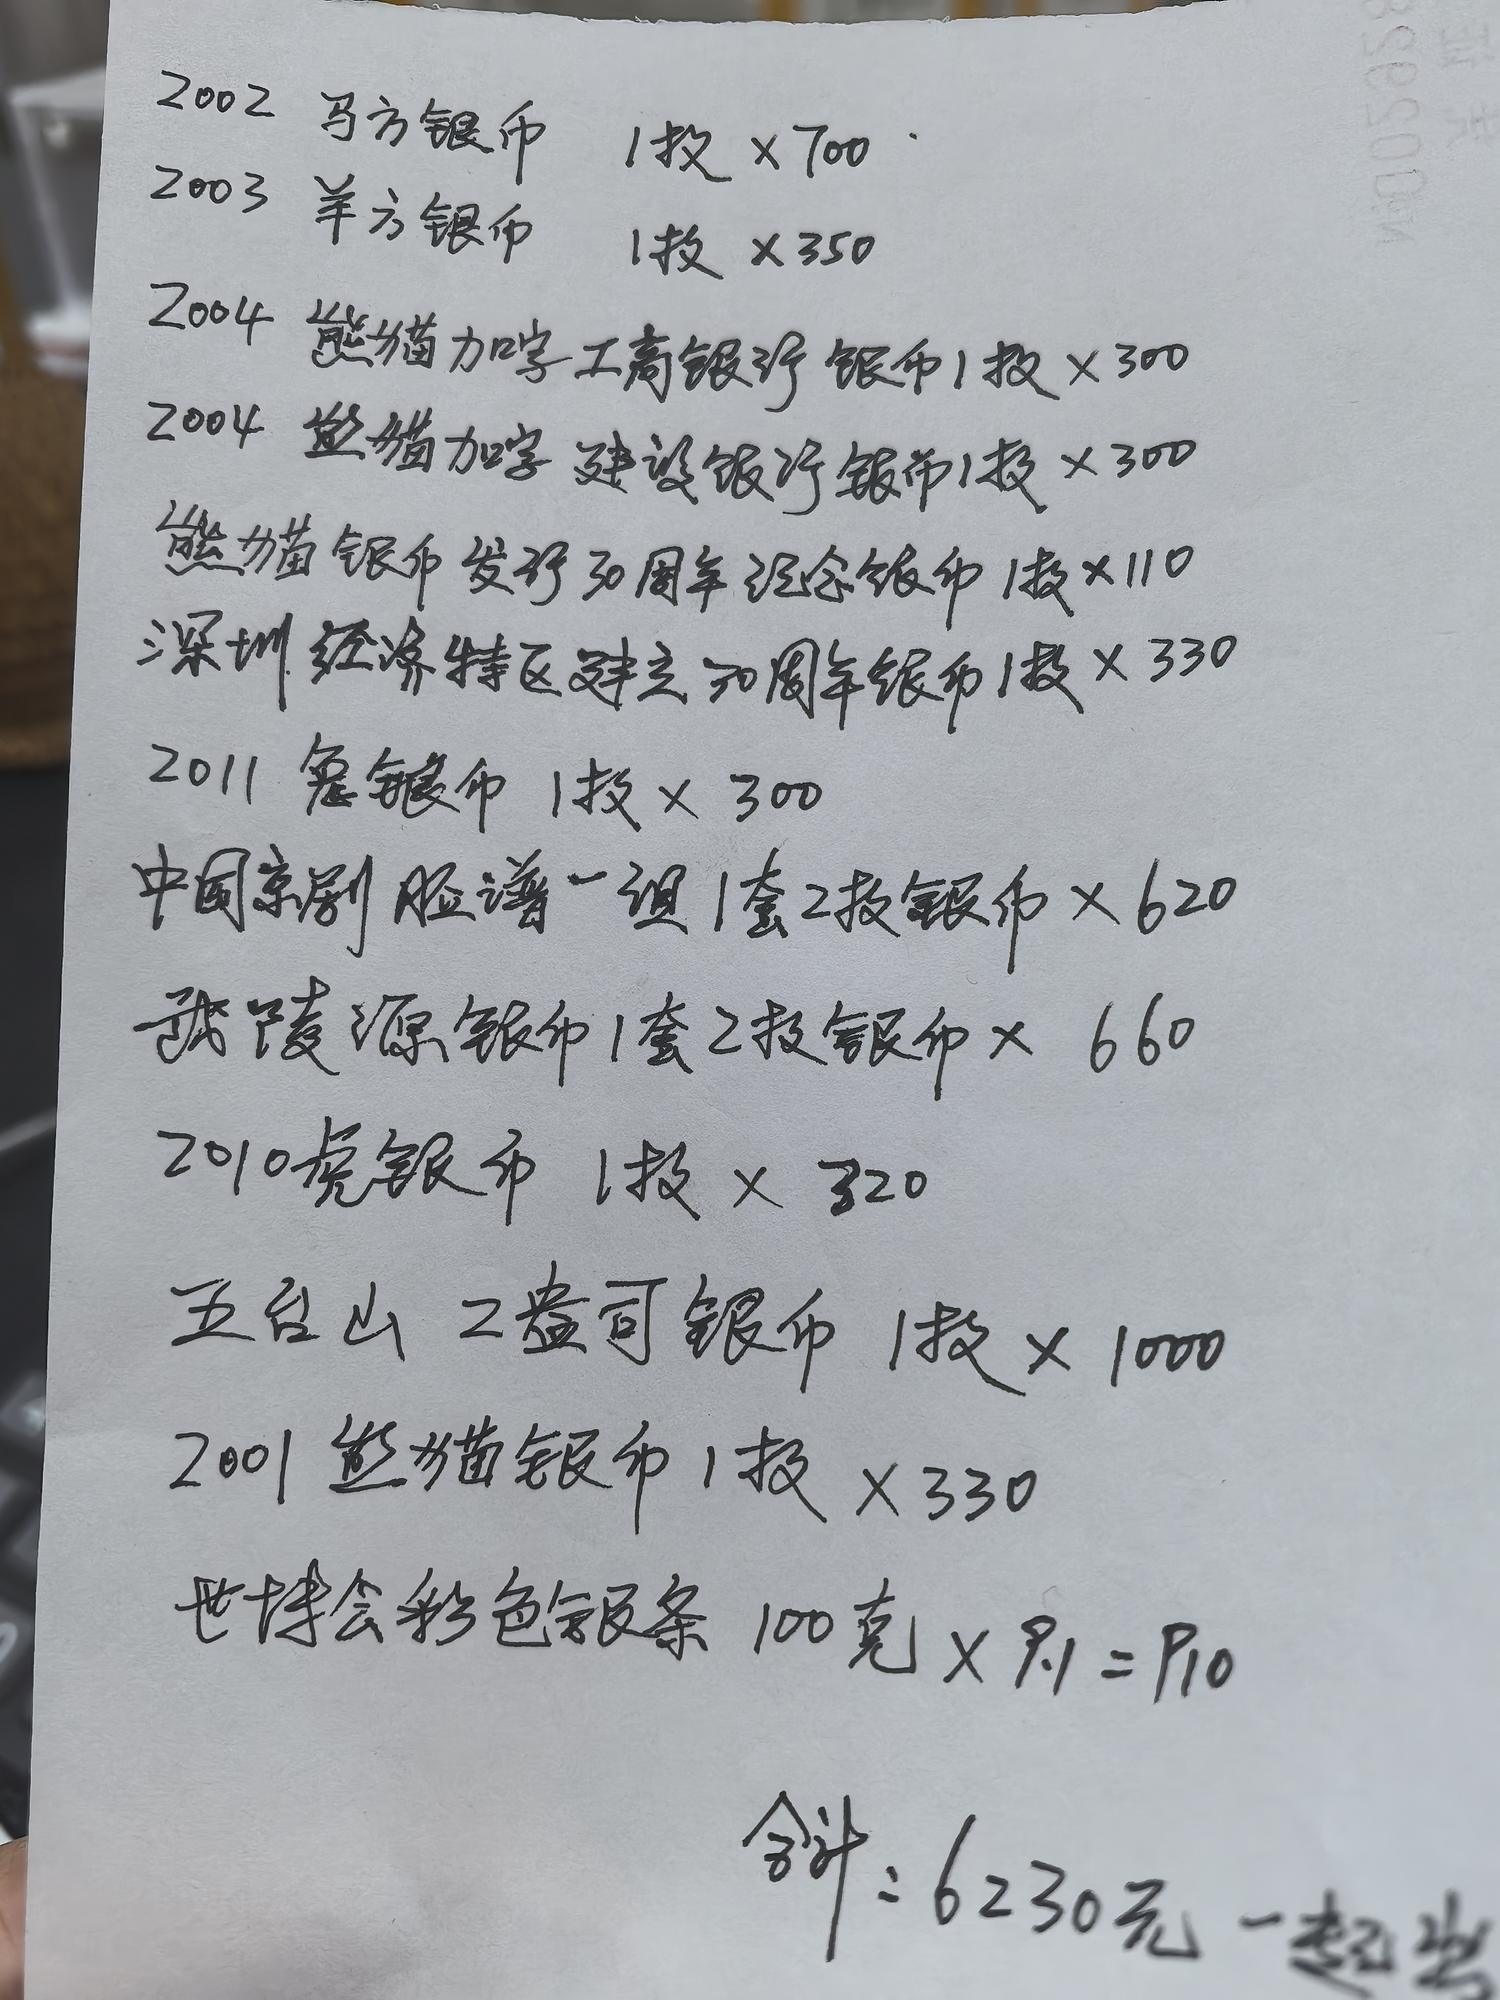 2002 马方银币 1枚 ×700
2003 羊方银币 1枚 ×350
2004 熊猫加字工商银行银币1枚×300
2004 熊猫加字建设银行银币1枚×300
熊猫银币发行30周年纪念银币1枚×110
深圳经济特区建立30周年银币1枚×330
2011 兔银币 1枚×300
中国京剧脸谱一组1套2枚银币×620
武陵源银币1套2枚银币×660
2010虎银币 1枚×320
五台山 2盎司银币 1枚×1000
2001 熊猫银币1枚×330
世博会彩色银条 100克×9.1=910
合计:6230元 一起出